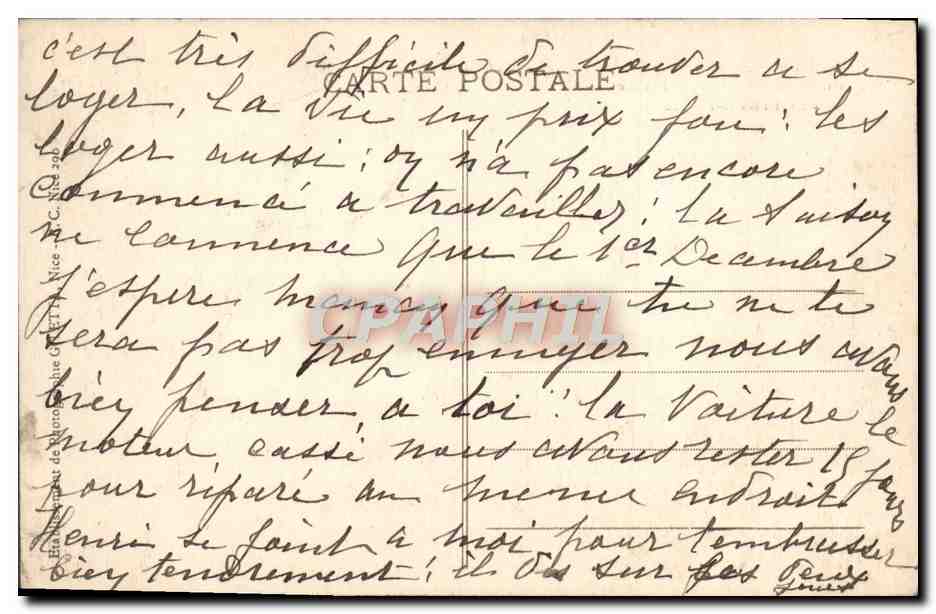 c'est très difficile de trouver a se
CARTE POSTALE
loger, la vie uy prix fou: les
loger aussi; oy n'a pas encore
Commencé a travailler; la saisoy
ne commence que le 1er Decembre
j'espere mamay que tu ne te
sera pas trop ennuyer nous avons
biey penser a toi! la voiture le
moteur cassé nous avons rester 15 jours
pour réparé au meme endroit
Henri se joint a moi pour t'embrasser
biey tendrement; il dis sur les deux
joues
Etablissement de Photographie - Nice
CPAPHIL